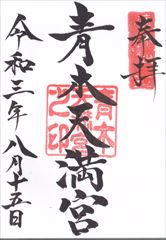 奉拝
青木天満宮
令和三年八月十五日